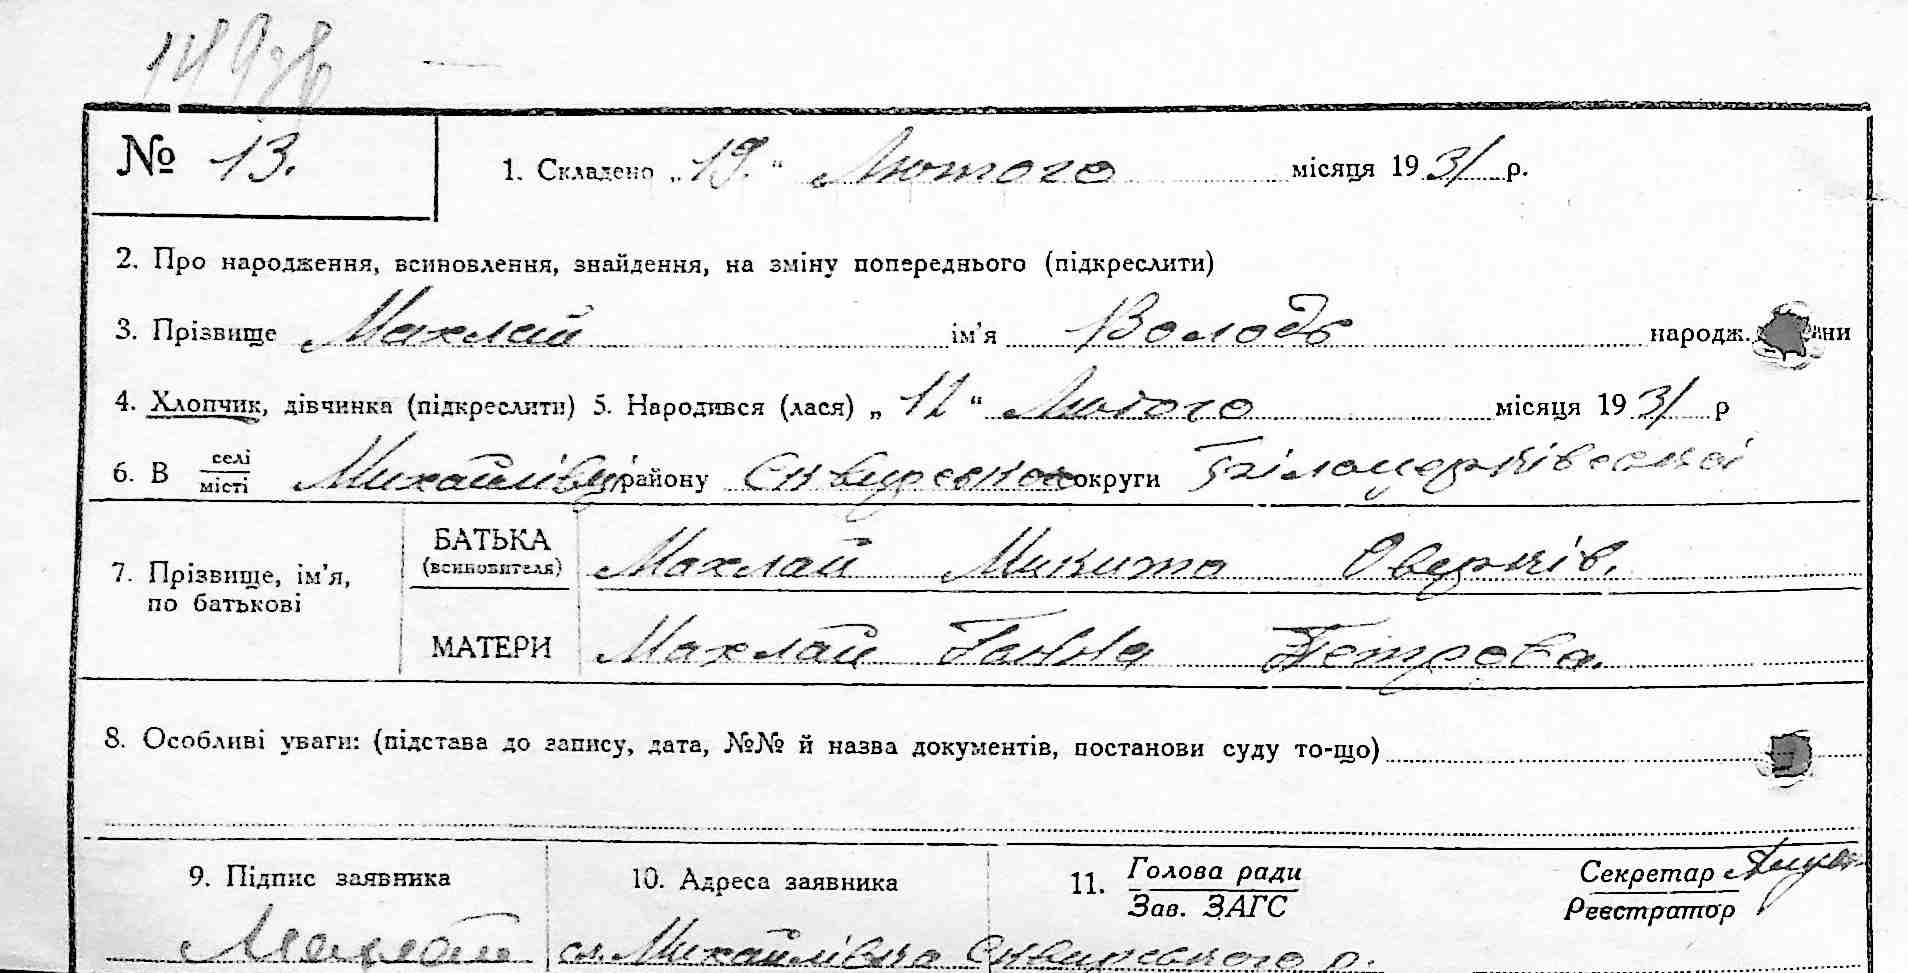 № 13.
1. Складено „19.“ Лютого місяця 1931 р.
2. Про народження, всиновлення, знайдення, на зміну попереднього (підкреслити)
3. Прізвище Махлай ім'я Володь народж. ини
4. Хлопчик, дівчинка (підкреслити) 5. Народився (лася) „12“ Лютого місяця 1931 р
6. В селі місті Михайлівці району Сквирсько округи Білоцерківської
7. Прізвище, ім'я, по батькові
БАТЬКА (всиновителя) Махлай Микита Оверків.
МАТЕРИ Махлай Ганна Петрова.
8. Особливі уваги: (підстава до запису, дата, №№ й назва документів, постанови суду то-що)
9. Підпис заявника 10. Адреса заявника 11. Голова ради Зав. ЗАГС Секретар Реєстратор
Махлай с. Михайлівка Сквирського р.